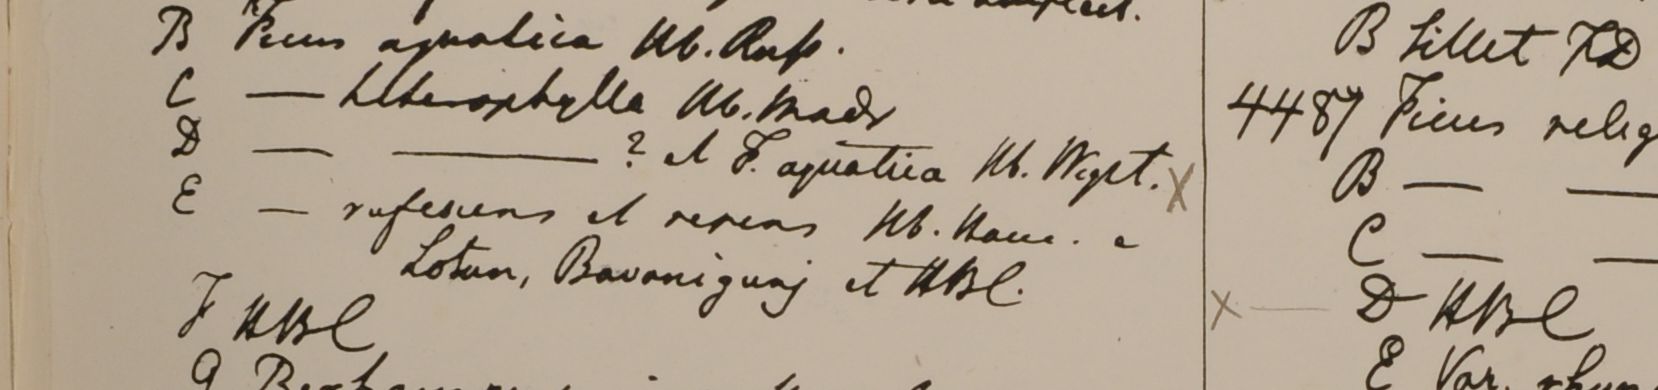 B Ficus aquatica Hb. Russ.
C — heterophylla Hb. Madr
D — — ? et F. aquatica Hb. Wight. X
E — rufescens et repens Hb. Ham. e
Lotun, Bavanigunj et HBC.
F HBC
G
B Sillet FD
4487 Ficus relig
B — —
C — —
X — D HBC
E Var.